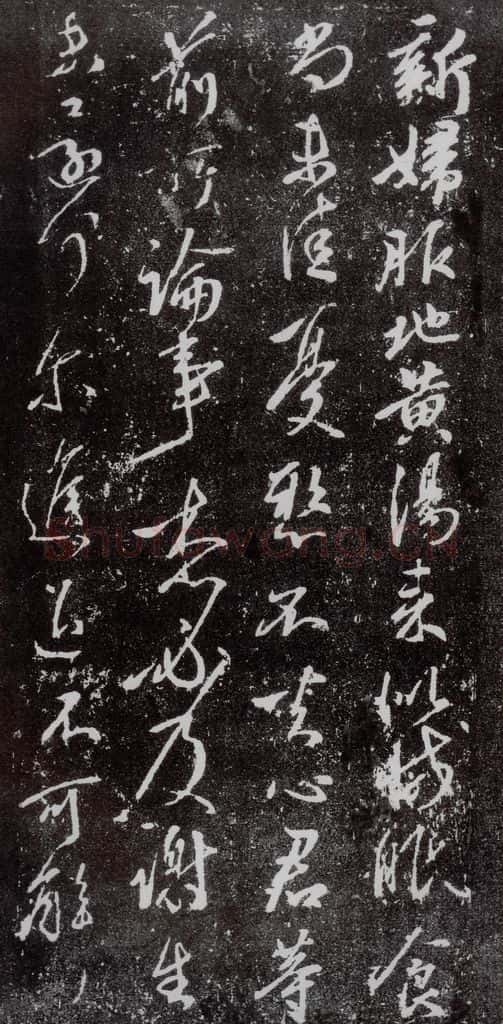 新婦服地黄湯来似減眠食
尚未佳憂懸不去心君等
前所論事想必及謝生
還可尔進退不可解
shufawang.cn